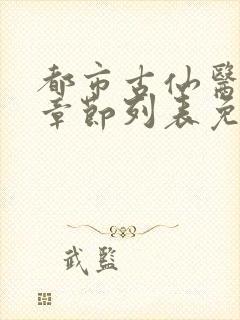 都市古仙醫
章節列表免
武監